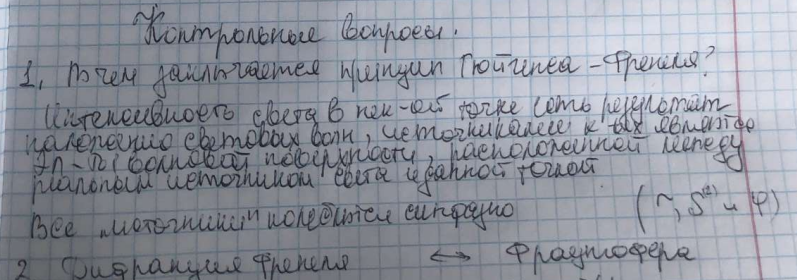 Контрольные вопросы.
1, В чем заключается принцип Гюйгенса - Френеля?
Интенсивность света в нек-ой точке есть результат
наложения световых волн, источниками к-ых являются
эл-ты волновой поверхности, расположенной между
реальным источником света и данной точкой
Все "источники" колеблются синфазно (~, S и φ)
2 Дифракция Френеля ⟷ Фраунгофера